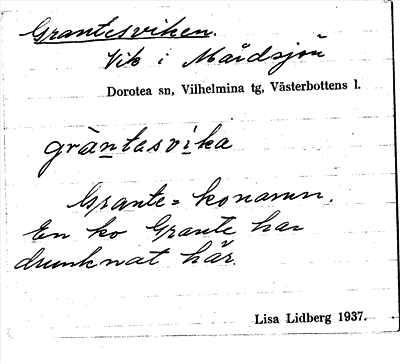 Grantesviken.
Vik i Måidsjön
Dorotea sn, Vilhelmina tg, Västerbottens l.
gràntasvika
Grante = konamn.
En ko Grante har
drunknat här.
Lisa Lidberg 1937.